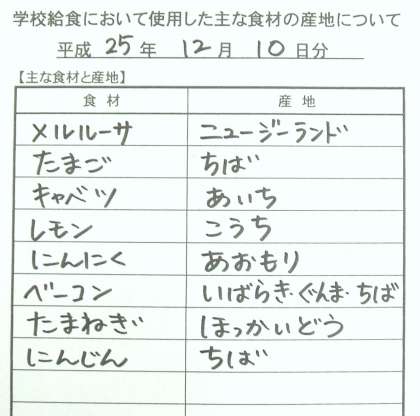 学校給食において使用した主な食材の産地について
平成 25 年 12 月 10 日分
【主な食材と産地】
食材 産地
メルルーサ ニュージーランド
たまご ちば
キャベツ あいち
レモン こうち
にんにく あおもり
ベーコン いばらき・ぐんま・ちば
たまねぎ ほっかいどう
にんじん ちば